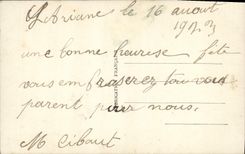 Ariane le 16 auout
une bonne heureise fête
vous embraserez tou vous
parent pour nous.
M Cibaut